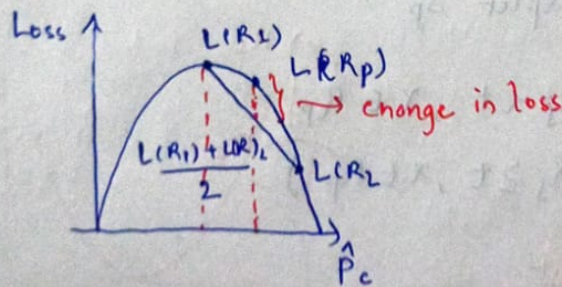 Loss
L(R1)
L(Rp)
→ change in loss
L(R1) + L(R)2
2
L(R2
P̂c